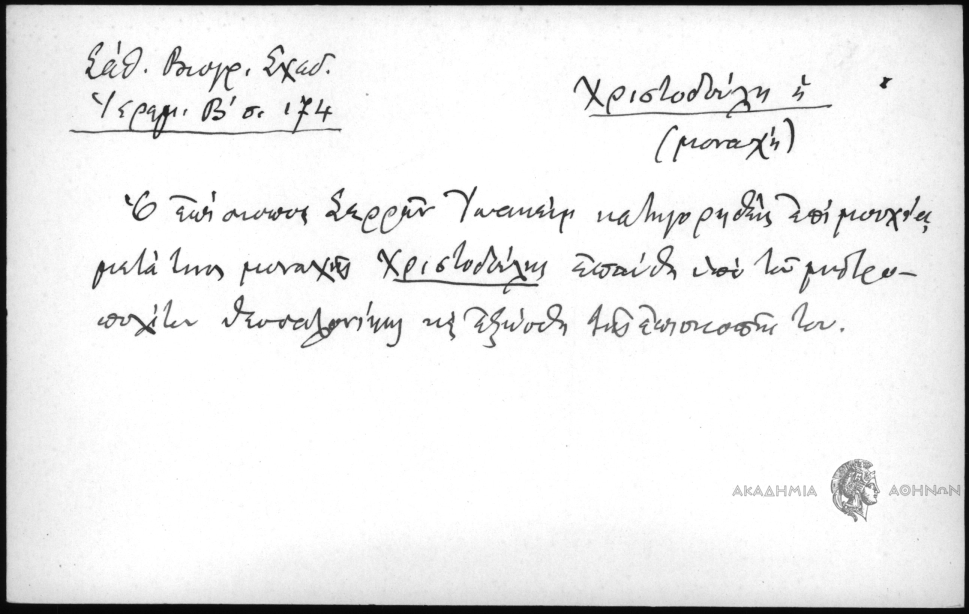 Σάθ. Βιογρ. Σχεδ.
Ἱερεμ. Β' σ. 174
Χριστοδούλη ἡ
(μοναχή)
Ὁ ἐπίσκοπος Σερρῶν Ἰωακεὶμ κατηγορηθεὶς ἐπὶ μοιχείᾳ
μετά τινος μοναχῆς Χριστοδούλης ἐπαύθη ὑπὸ τοῦ μητρο-
πολίτου Θεσσαλονίκης κ ἐξώσθη τῆς ἐπισκοπῆς του.
ΑΚΑΔΗΜΙΑ ΑΘΗΝΩΝ